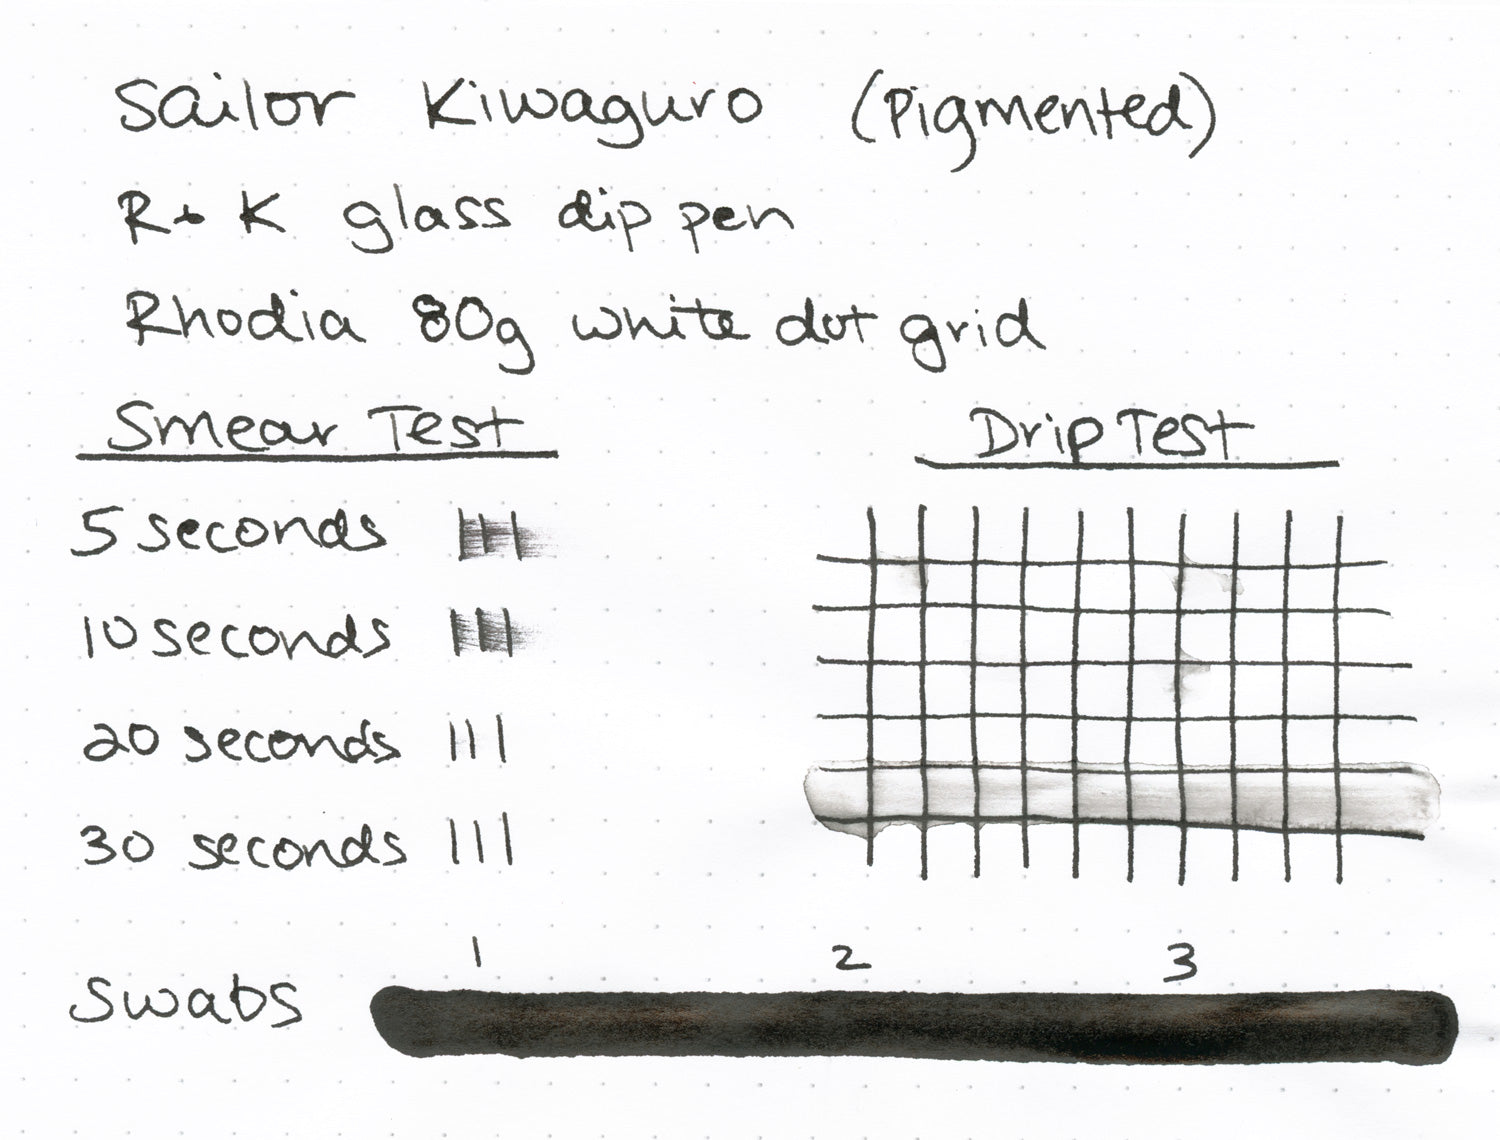 Sailor Kiwaguro (Pigmented)
R+K glass dip pen
Rhodia 80g white dot grid
Smear Test
Drip Test
5 seconds
10 seconds
20 seconds
30 seconds
1 2 3
Swabs